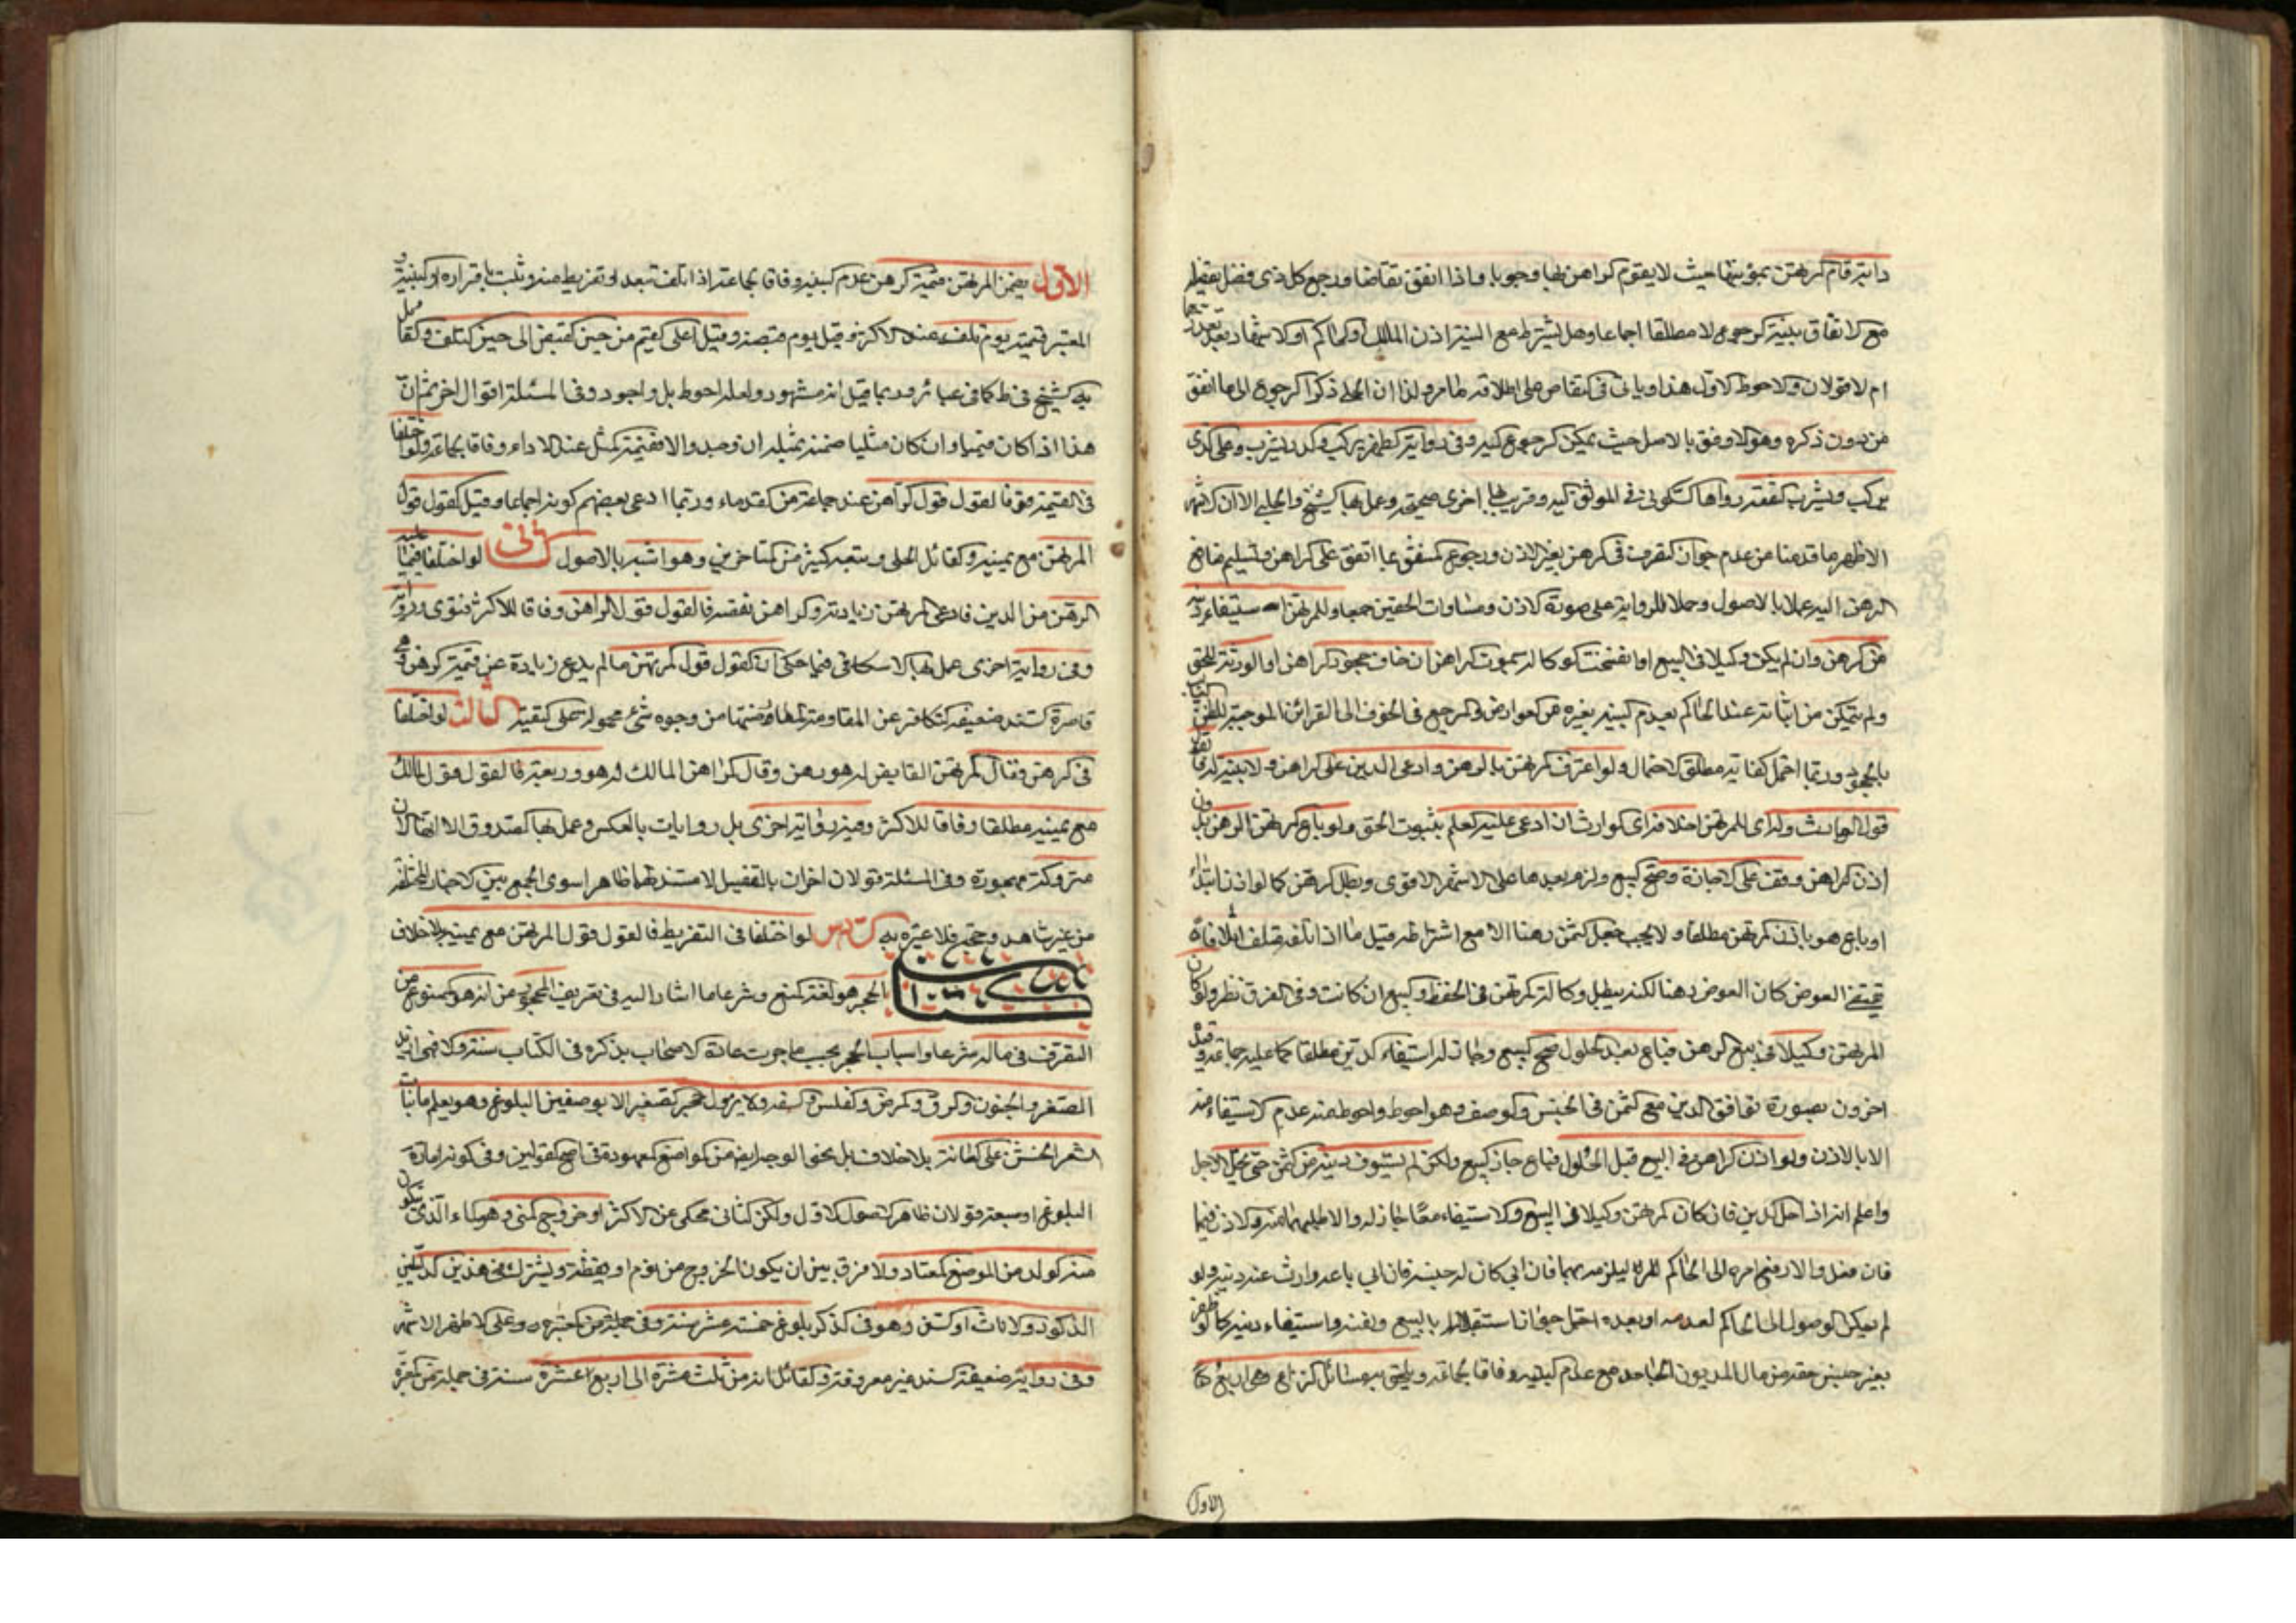 دابة قام المرتهن بمؤنتها حيث لا يقوم الراهن بها وجوبا واذا انفق تقاصا ورجع كل ذي فضل بفضله
مع الاتفاق بنية الرجوع لا مطلقا اجماعا وهل يشترط مع النية اذن المالك او الحاكم او الاشهاد بعد تعذرهما
ام لا قولان والاحوط الاول هذا وياتي في التقاص على اطلاقه ظاهر ولذا ان الحلي ذكر الرجوع الى ما انفق
من دون ذكره وهو الاوفق بالاصل حيث يمكن الرجوع اليه وفي رواية الظهر يركب والدر يشرب وعلى الذي
يركب ويشرب النفقة رواها السكوني في الموثق اليه وقريب بها اخرى صحيحة وعمل بها الشيخ والحلبي الا ان الاشهر
الاظهر ما قدمنا من عدم جواز التصرف في الرهن بغير الاذن ورجوع المنفق بما انفق على الراهن وتسليم منافع
الرهن اليه عملا بالاصول وحملا للرواية على صورة الاذن ومساوات الحقين جمعا وللمرتهن استيفاء دينه
من الرهن وان لم يكن وكيلا في البيع او انفسخت الوكالة بموت الراهن ان خاف جحود الراهن او الورثة للحق
ولم يتمكن من اثباته عند الحاكم بعدم البينة وغيره من العوارض والمرجع في الخوف الى القرائن الموجبة للظن الغالب
بالجحود وربما احتمل كفاية مطلق الاحتمال ولو اعترف المرتهن بالرهن وادعى الدين على الراهن ولا بينة له فالقول
قول الوارث وله اي للمرتهن احلافه اي الوارث ان ادعى عليه العلم بثبوت الحق ولو باع المرتهن الرهن بدون
اذن الراهن وقف على الاجازة وصح البيع ولزم بعدها على الاشهر الاقوى وبطل الرهن كما لو اذن ابتداء
او باع هو باذن المرتهن مطلقا ولا يجب جعل الثمن رهنا الا مع اشتراطه قيل اما اذا اتلفه متلف اتلافا
يقتضي العوض كان العوض رهنا لكنه يبطل وكالة المرتهن في الحفظ والبيع ان كانت وفي الفرق نظر ولو كان
المرتهن وكيلا في بيع الرهن فباع بعد الحلول صح البيع وجاز له استيفاء الدين مطلقا كما عليه جماعة وقيده
اخرون بصورة توافق الدين مع الثمن في الجنس والوصف وهو احوط واحوط منه عدم الاستيفاء منه
الا بالاذن ولو اذن الراهن في البيع قبل الحلول فباع جاز البيع ولكن لم يستوف دينه من الثمن حتى يحل الاجل
واعلم انه اذا حل الدين فان كان المرتهن وكيلا في البيع والاستيفاء معا جاز له والا طلبهما منه والاذن فيهما
فان فعل والا رفع امره الى الحاكم ليلزمه بهما فان ابى كان له حبسه فان ابى باعه وادث عنه دينه ولو
لم يمكن الوصول الى الحاكم لعدمه او بعده احتمل جواز استقلاله بالبيع بنفسه واستيفاء دينه كما لو ظفر
بغير جنس حقه من مال المديون الجاحد مع عدم البينة وفاقا لجماعة ويلحق به مسائل النزاع وهي اربع
الاول
الاول يضمن المرتهن قيمة الرهن عدم البينة وفاقا لجماعة اذا تلف بتعد او تفريط منه وثبت باقراره او البينة و
المعتبر قيمته يوم تلفه عند الاكثر وقيل يوم قبضه وقيل اعلى القيم من حين القبض الى حين التلف والقائل
به الشيخ في ط كما في عبائر وربما قيل انه مشهور ولعله احوط بل واجود وفي المسئلة اقوال اخر ثم ان
هذا اذا كان قيميا وان كان مثليا ضمنه بمثله ان وجد والا فقيمة المثل عند الاداء وفاقا لجماعة ولو اختلفا
في القيمة فالقول قول الراهن عند جماعة من القدماء وربما ادعى بعضهم كونه اجماعا وقيل القول قول
المرتهن مع يمينه والقائل الحلي وتبعه كثير من المتاخرين وهو اشبه بالاصول الثاني لو اختلفا فيما عليه
الرهن من الدين فادعى المرتهن زيادته والراهن نقصه فالقول قول الراهن وفاقا للاكثر فتوى ورواية
وفي رواية اخرى عمل بها الاسكافي فيما حكي ان القول قول المرتهن ما لم يدع زيادة عن قيمة الرهن وهي
قاصرة السند ضعيفة التكافؤ عن المقاومة لما قدمنا من وجوه شتى محمولة على التقية الثالث لو اختلفا
في الرهن فقال المرتهن القابض له هو رهن وقال الراهن المالك له هو وديعة فالقول قول المالك
مع يمينه مطلقا وفاقا للاكثر وفيه رواية اخرى بل روايات بالعكس وعمل بها الصدوق الا انها الان
متروكة مهجورة وفي المسئلة قولان اخران بالتفصيل لا مستند لهما ظاهرا سوى الجمع بين الاخبار المختلفة
من غير شاهد وحجة فلا عبرة به السادس لو اختلفا في التفريط فالقول قول المرتهن مع يمينه بلا خلاف
كتاب الحجر الحجر هو لغة المنع وشرعا ما اشار اليه في تعريف المحجور من انه هو الممنوع من
التصرف في ماله شرعا واسباب الحجر بحسب ما جرت عادة الاصحاب بذكره في الكتاب ستة والا فهي ازيد
الصغر والجنون والرق والمرض والفلس والسفه ولا يزول حجر الصغير الا بوصفين البلوغ وهو يعلم بانبات
الشعر الخشن على العانة بلا خلاف بل بنحو الوجه ايضا من المواضع المعهودة في اصح القولين وفي كونه امارة
البلوغ او سبقه قولان ظاهر الاصول الاول ولكن الثاني محكي عن الاكثر او خروج المني وهو الماء الذي يكون
منه الولد من الموضع المعتاد ولا فرق بين ان يكون الخروج من نوم او يقظة ويشترك في هذين الدليلين
الذكور والاناث او السن وهو في الذكر بلوغ خمسة عشر سنة وفي جملة من المعتبرة وعلى الاظهر الاشهر
وفي رواية ضعيفة السند غير معروفة القائل انه من ثلث عشرة الى اربع عشرة سنة في جملة من المعتبرة